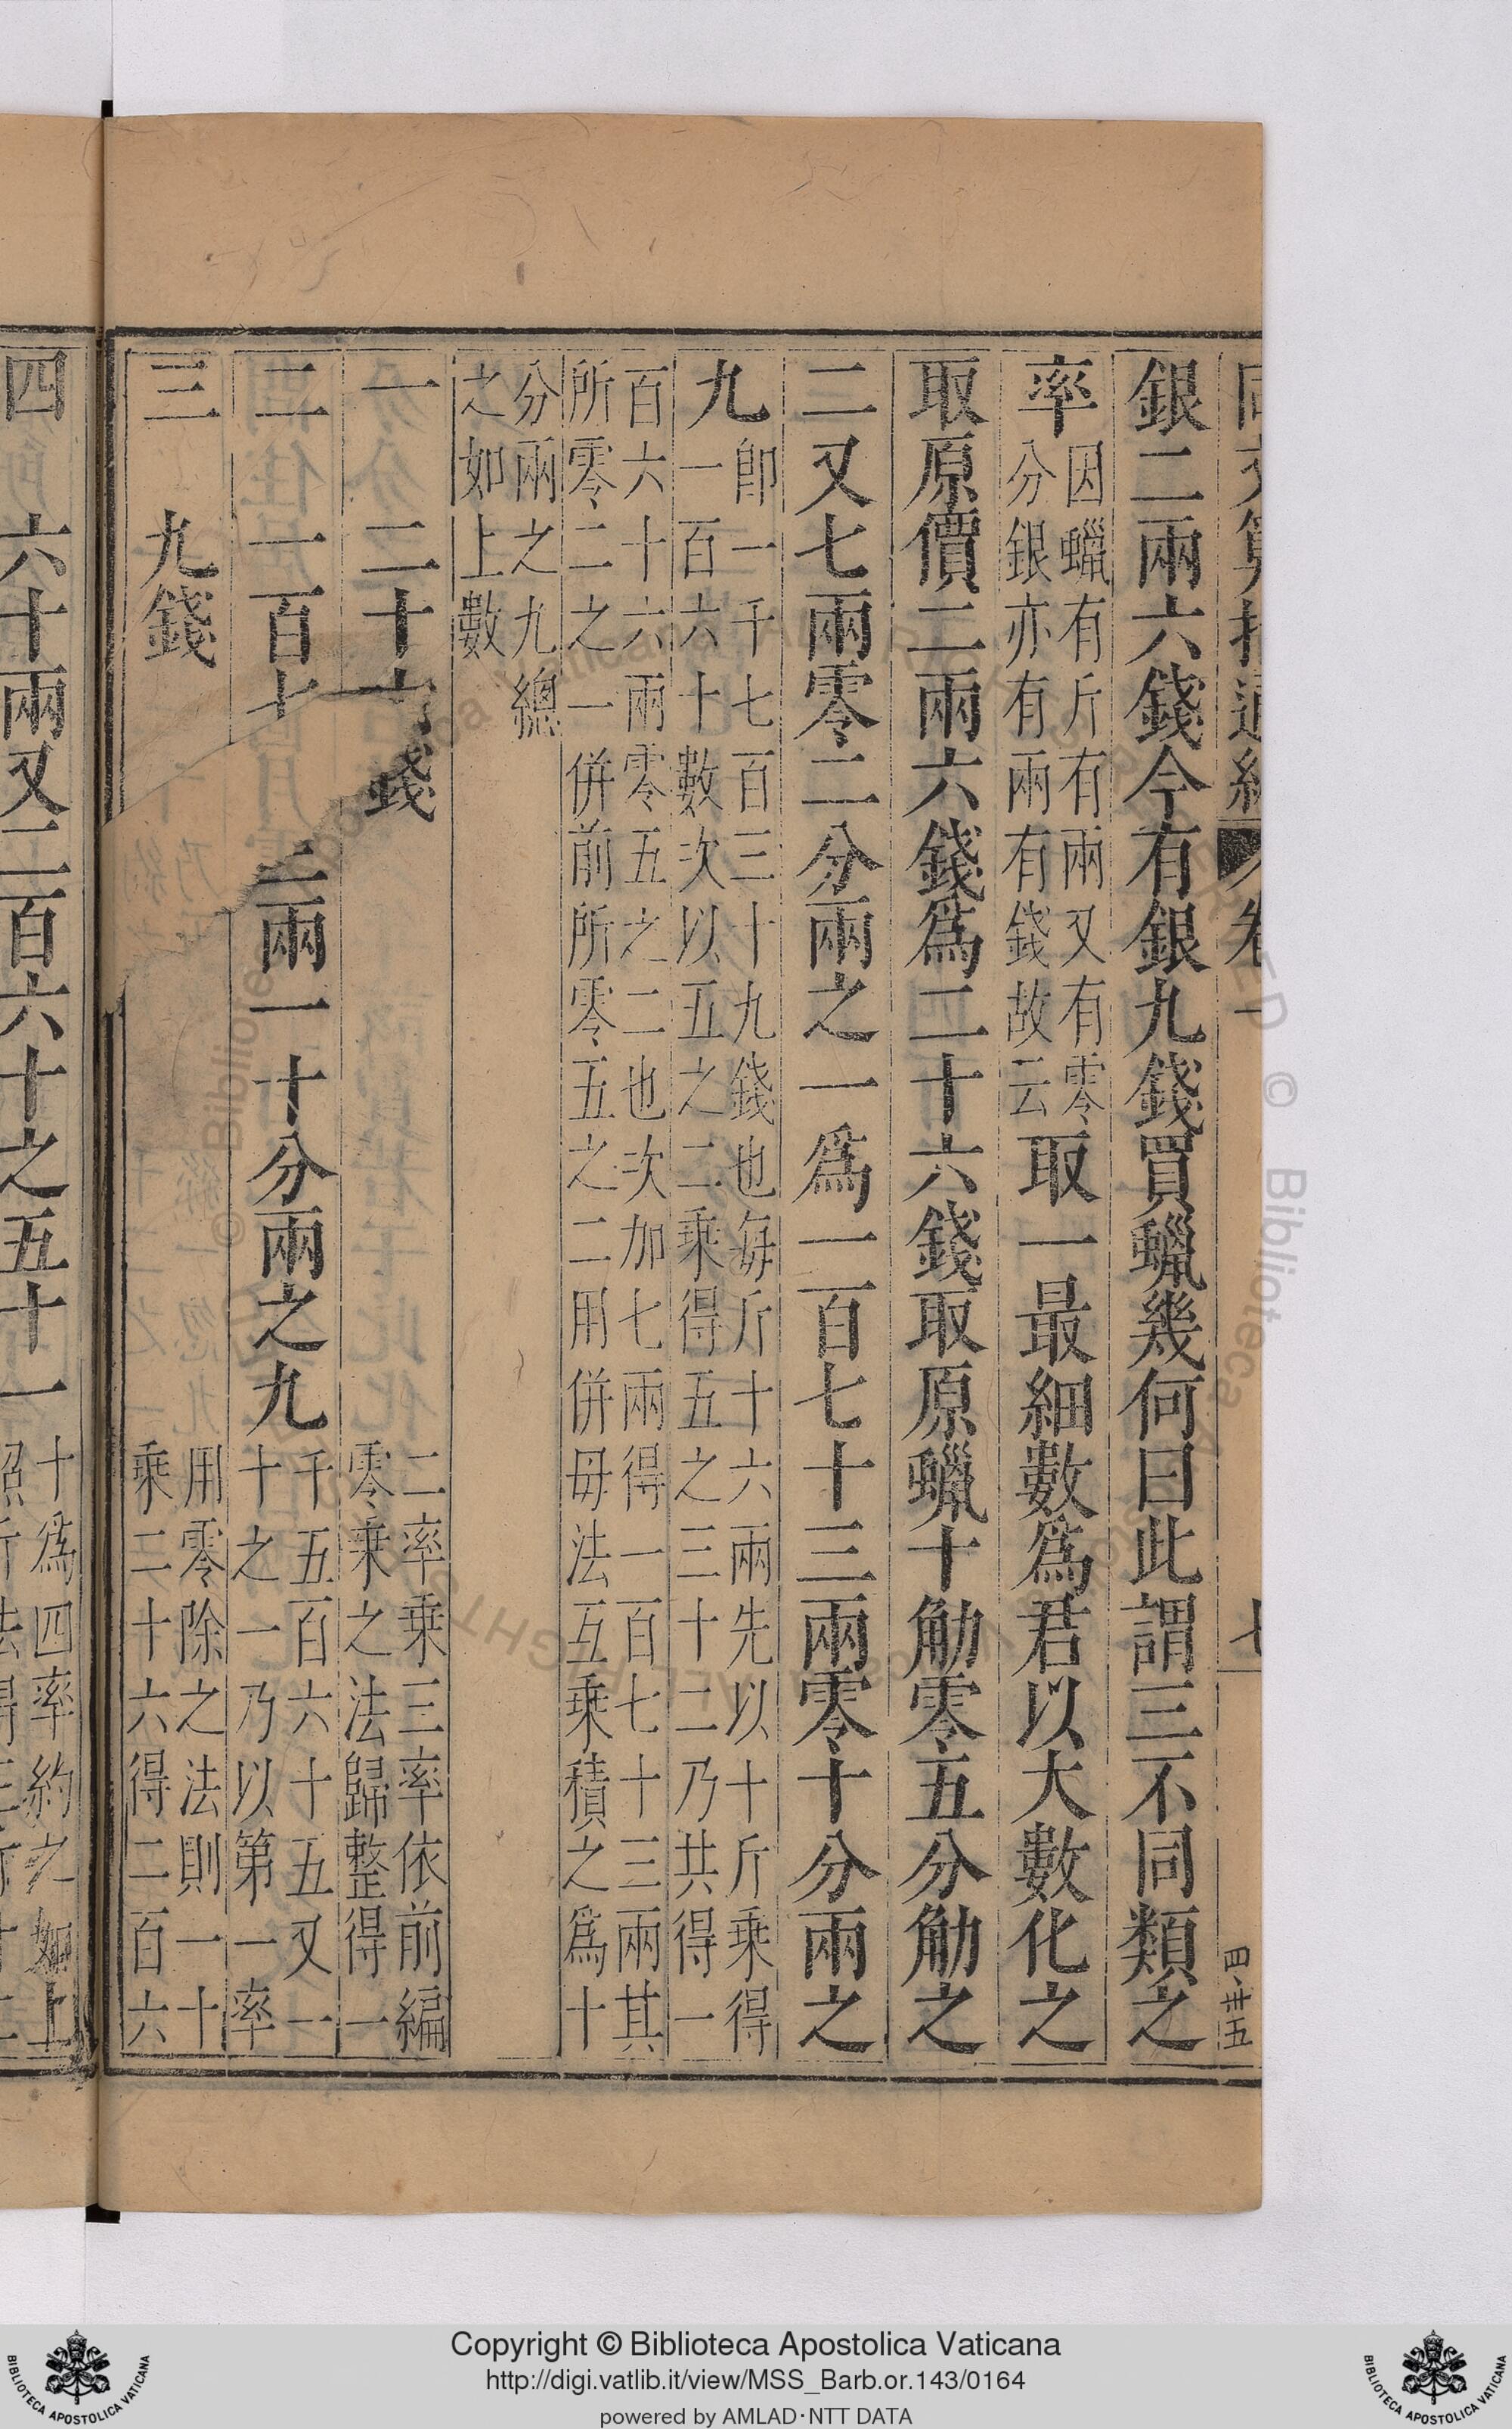 銀二兩六錢今有銀九錢買蠟幾何曰此謂三不同類之
率因蠟有斤有兩又有零分銀亦有兩有錢故云取一最細數爲君以大數化之
取原價二兩六錢爲二十六錢取原蠟十觔零五分觔之
二又七兩零二分兩之一爲一百七十三兩零十分兩之
九卽一千七百三十九錢也每斤十六兩先以十斤乘得
一百六十數次以五之二乘得五之三十二乃共得一
百六十六兩零五之二也次加七兩得一百七十三兩其
所零二之一併前所零五之二用併母法互乘積之爲十
分兩之九總
之如上數
一 二十六錢 二率乘三率依前編
零乘之法歸整得一
二 一百七 三兩一十分兩之九 千五百六十五又一
十之一乃以第一率
三 九錢 用零除之法則一十
乘二十六得二百六
四 六十兩又二百六十之五十一 十爲四率約之如上
四 廿五
Copyright © Biblioteca Apostolica Vaticana
http://digi.vatlib.it/view/MSS_Barb.or.143/0164
powered by AMLAD·NTT DATA
BIBLIOTECA APOSTOLICA VATICANA
BIBLIOTECA APOSTOLICA VATICANA